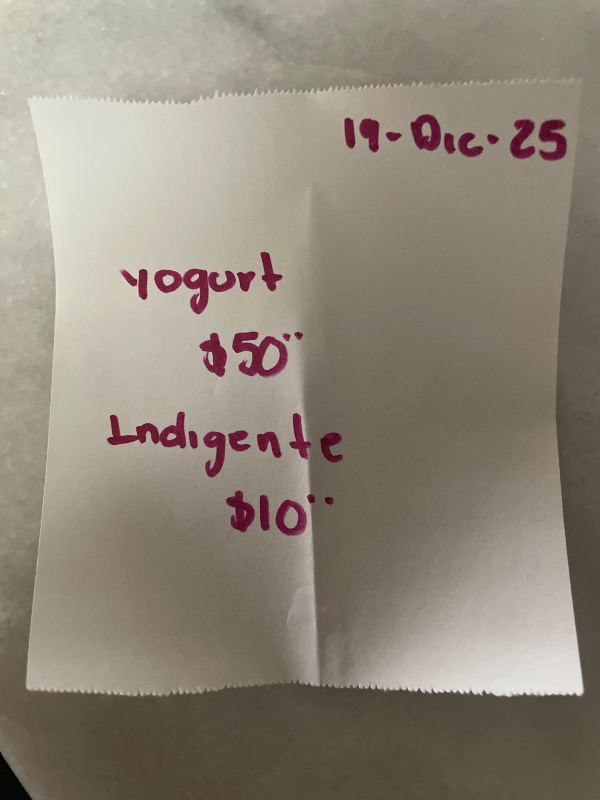 19-Dic-25
Yogurt
$50¨
Indigente
$10¨